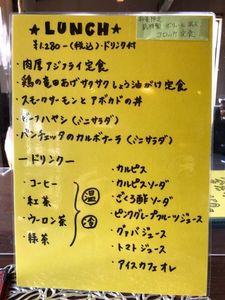 ★LUNCH★
¥1,280-(税込)・ドリンク付
・肉厚アジフライ定食
・鶏の竜田あげザクザクしょう油がけ定食
・スモークサーモンとアボカドの丼
・ビーフハヤシ(ミニサラダ)
・パンチェッタのカルボナーラ(ミニサラダ)
―ドリンク―
・コーヒー
・紅茶
・ウーロン茶
・緑茶
温
冷
・カルピス
・カルピスソーダ
・ざくろ酢ソーダ
・ピンクグレープフルーツジュース
・グァバジュース
・トマトジュース
・アイスカフェオレ
数量限定
コロッケ定食